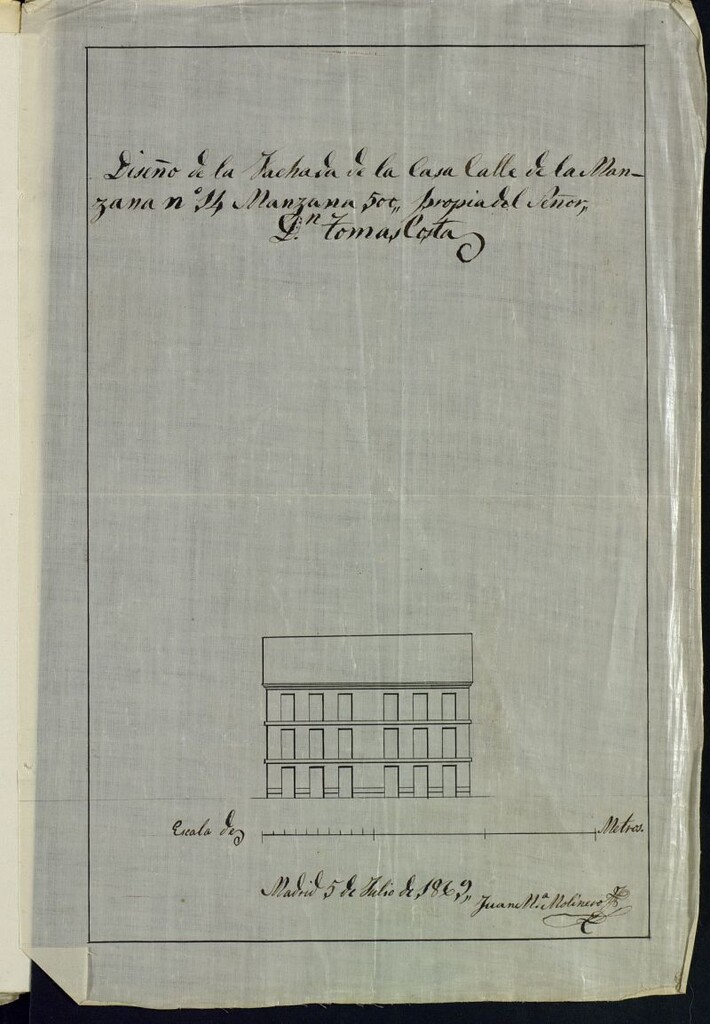 Diseño de la Fachada de la Casa Calle de la Man-
zana nº 14, Manzana 500,, propia del Señor,,
D.n Tomas Costa
Escala de Metros.
Madrid 5 de Julio de, 1869,,
Juan M.a Molinero